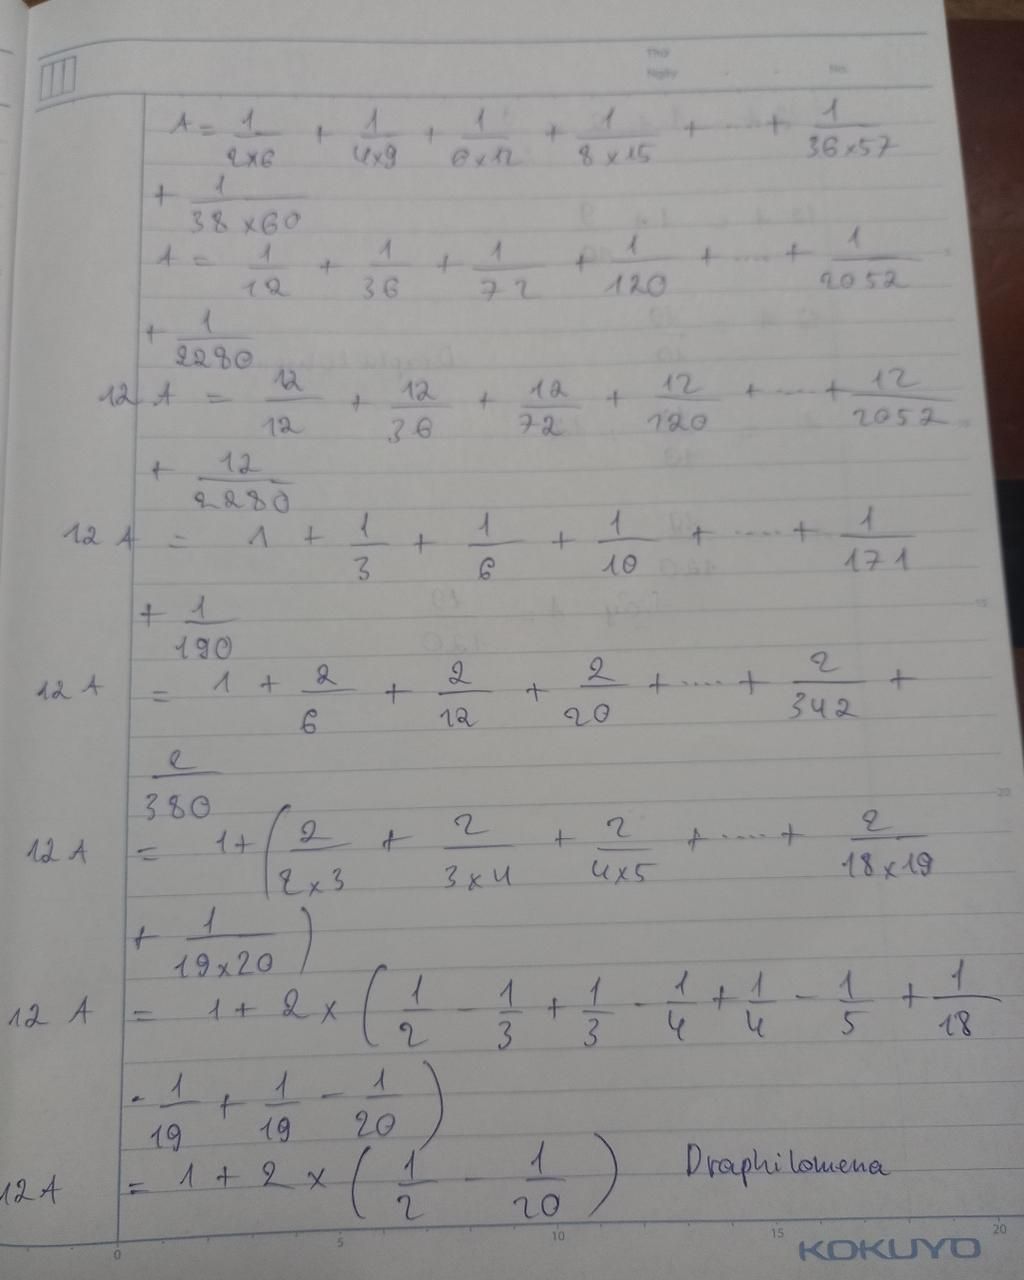 Thứ
Ngày . . No.
A = 1/(2×6) + 1/(4×9) + 1/(6×12) + 1/(8×15) + .... + 1/(36×57)
+ 1/(38×60)
A = 1/12 + 1/36 + 1/72 + 1/120 + .... + 1/2052
+ 1/2280
12 A = 12/12 + 12/36 + 12/72 + 12/120 + .... + 12/2052
+ 12/2280
12 A = 1 + 1/3 + 1/6 + 1/10 + .... + 1/171
+ 1/190
12 A = 1 + 2/6 + 2/12 + 2/20 + .... + 2/342 +
2/380
12 A = 1 + ( 2/(2×3) + 2/(3×4) + 2/(4×5) + .... + 2/(18×19)
+ 1/(19×20) )
12 A = 1 + 2 × ( 1/2 - 1/3 + 1/3 - 1/4 + 1/4 - 1/5 + 1/18
- 1/19 + 1/19 - 1/20 )
12 A = 1 + 2 × ( 1/2 - 1/20 ) Draphilomena
0 5 10 15 20
KOKUYO